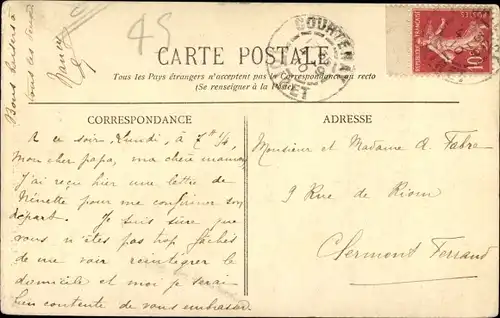 45
Bons baisers à
tous les deux
Nancy
COURTENAY
LOIRET
10
CARTE POSTALE
Tous les Pays étrangers n'acceptent pas la Correspondance au recto
(Se renseigner à la Poste)
CORRESPONDANCE
ADRESSE
A ce soir, Lundi, à 7H 1/4
Mon cher papa, ma chère maman,
j'ai reçu hier une lettre de
Ninette pour me confirmer son
départ. Je suis sûre que
vous n'êtes pas trop fâchés
de me voir reintégrer le
domicile et moi je serai
bien contente de vous embrasser
Monsieur et Madame A. Fabre
9 Rue de Riom
Clermont Ferrand